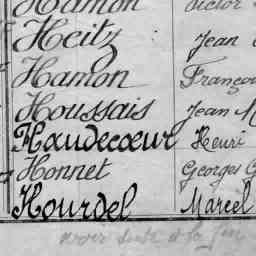 Hamon Victor
Heitz Jean
Hamon Françoi
Houssais Jean M
Haudecœur Henri
Honnet Georges G
Hourdel Marcel
voir suite à la fin